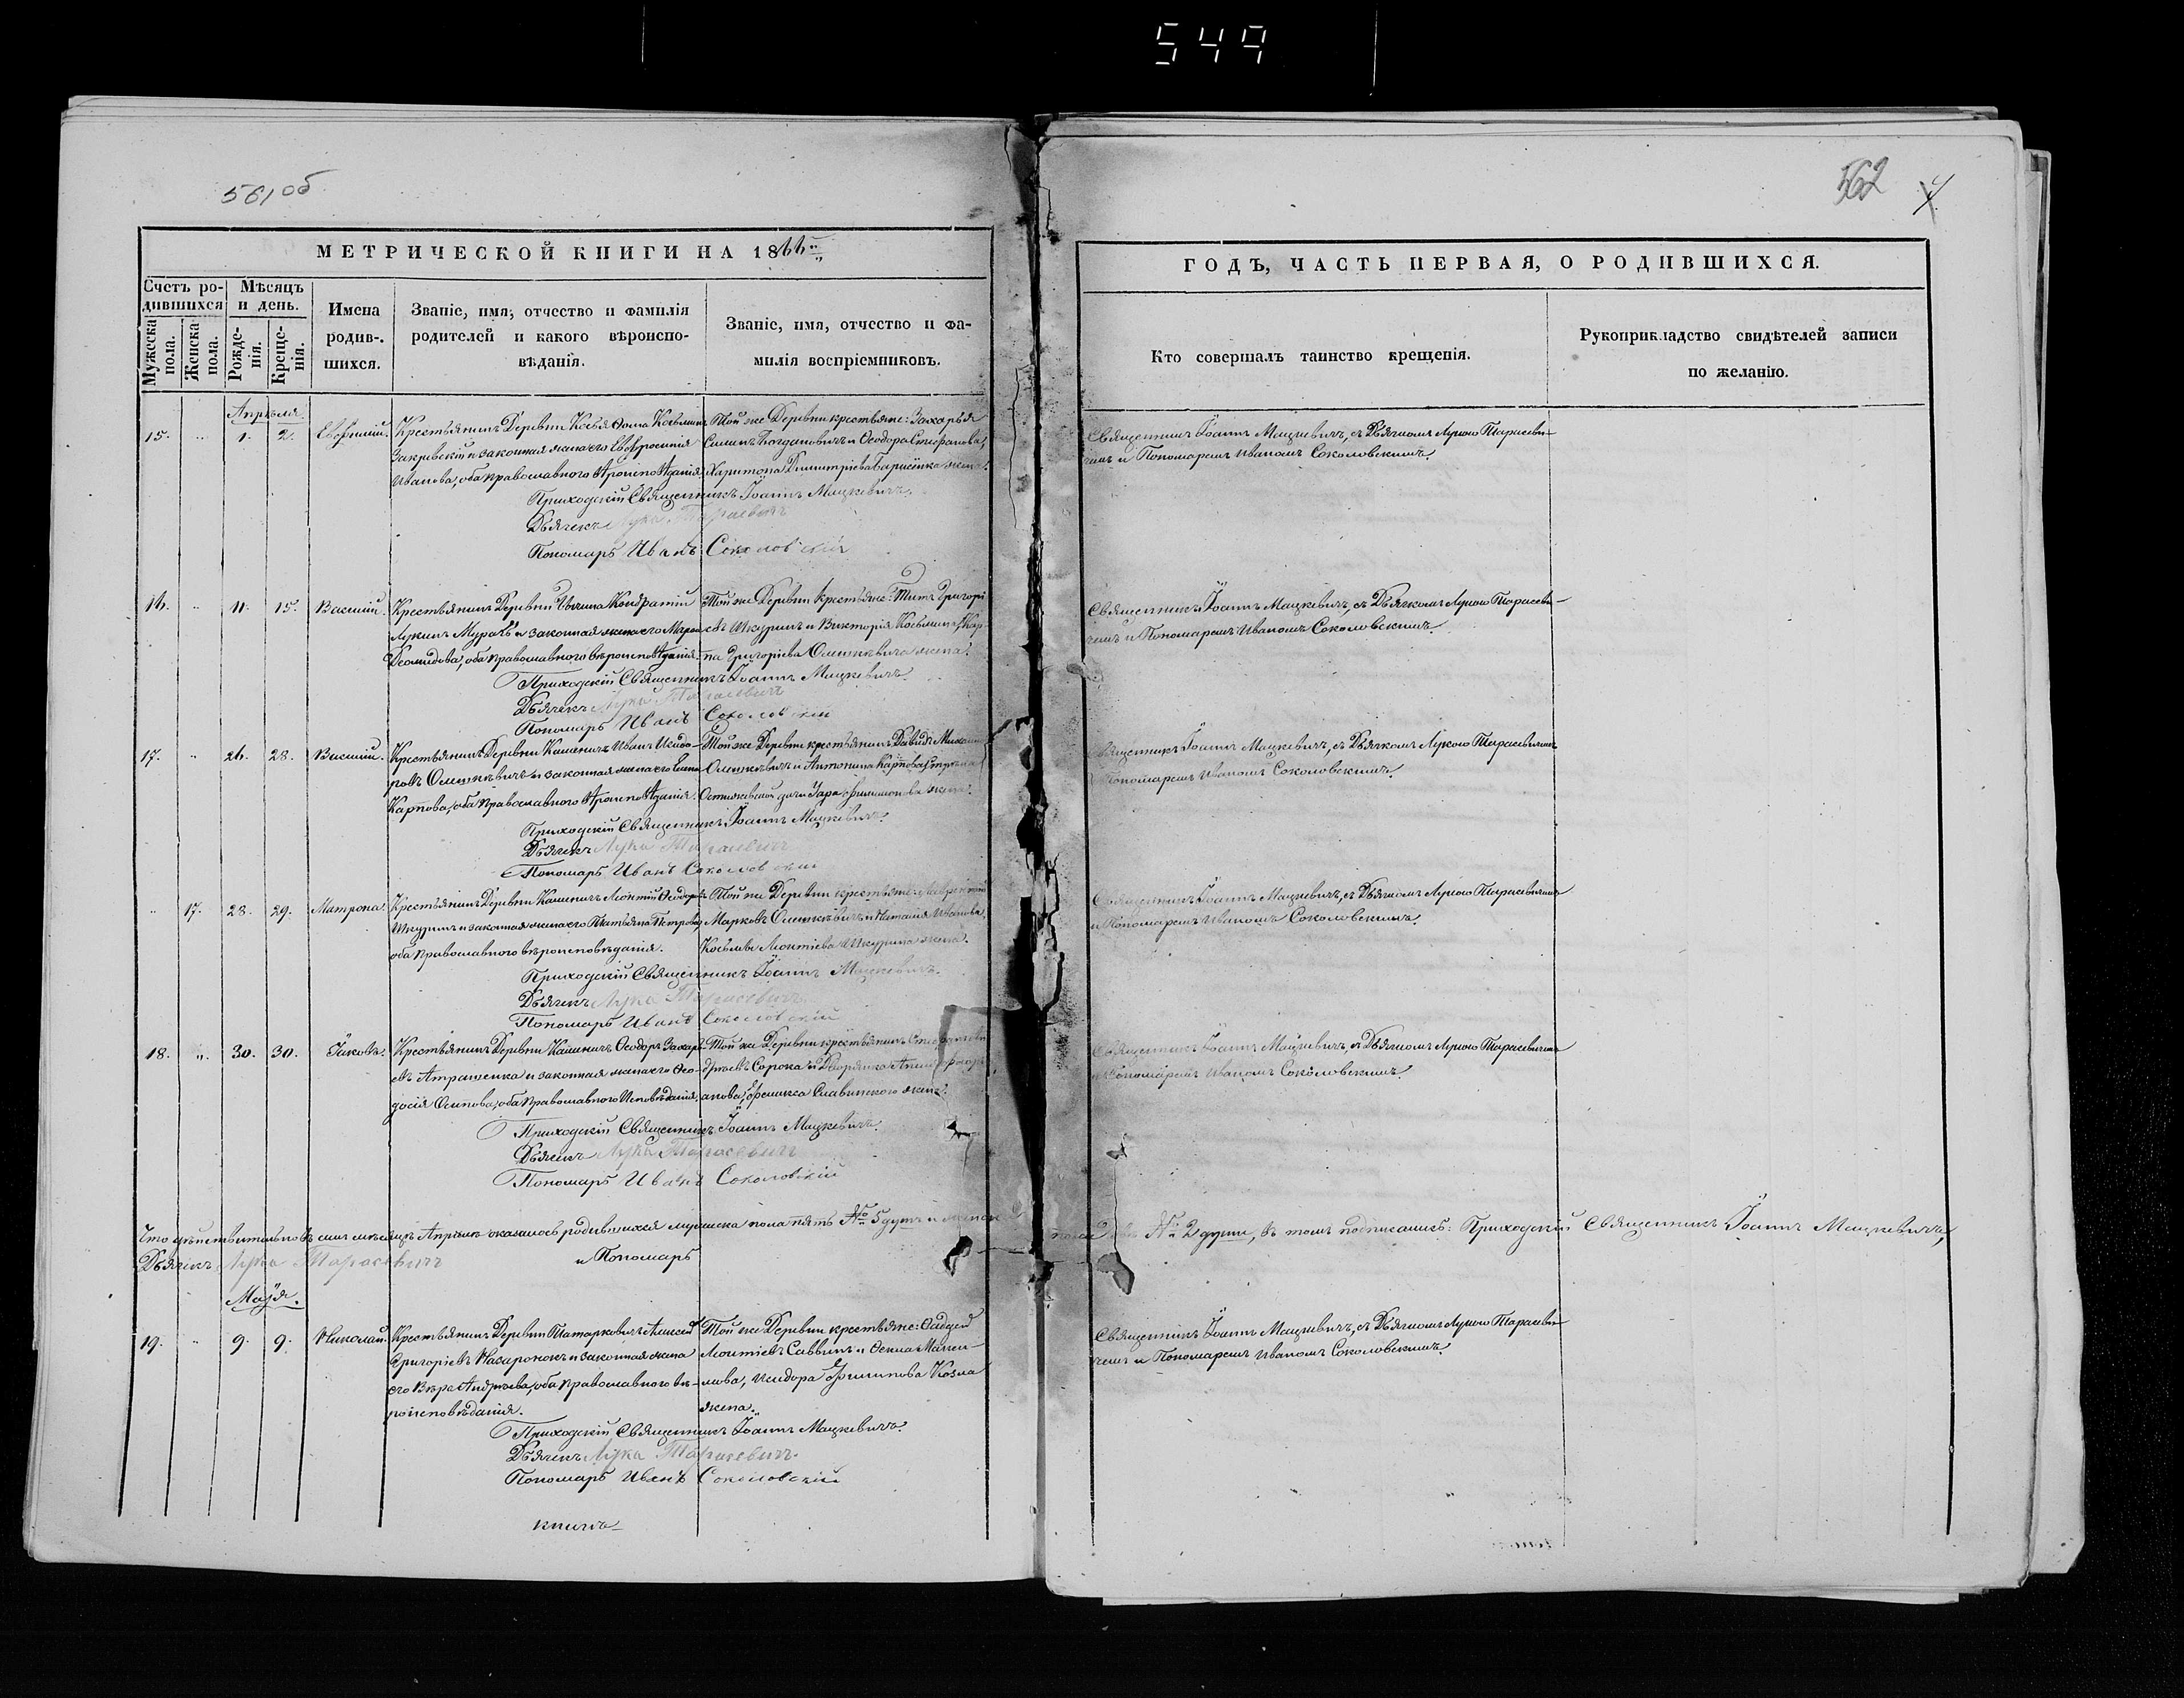 549
561 об
562
4
МЕТРИЧЕСКОЙ КНИГИ НА 1866й
ГОДЪ, ЧАСТЬ ПЕРВАЯ, О РОДИВШИХСЯ.
Счетъ родившихся
Мужеска пола.
Женска пола.
Мѣсяцъ и день.
Рожденія.
Крещенія.
Имена родившихся.
Званіе, имя, отчество и фамилія родителей и какого вѣроисповѣданія.
Званіе, имя, отчество и фамилія воспріемниковъ.
Кто совершалъ таинство крещенія.
Рукоприкладство свидѣтелей записи по желанію.
Апрѣля
15. " 1. 2. Евѳимій.
Крестьянинъ Деревни Ѳома Косьминъ
Закревскій и законная жена его Евфросинія
Иванова, оба православнаго вѣроисповѣданія.
Той же Деревни крестьяне: Захарья
Симонъ Богдановичъ и Ѳеодора Стефанова,
Харитона Димитріева жена.
Священникъ Іоаннъ Мацкевичъ, съ Дьячкомъ Лукою Тарасеви-
чемъ и Пономаремъ Иваномъ Соколовскимъ.
Приходскій Священникъ Іоаннъ Мацкевичъ.
Дьячекъ Лука Тарасевичъ
Пономарь Иванъ Соколовскій
16. " 11. 15. Василій.
Крестьянинъ Деревни Кондратій
Лукинъ и законная жена его
Демидова, оба православнаго вѣроисповѣданія.
Той же Деревни крестьяне: Титъ Григорь-
евъ Шкуринъ и Викторія Косьмина, Кар-
па Григоріева Олешкевича жена.
Священникъ Іоаннъ Мацкевичъ, съ Дьячкомъ Лукою Тарасеви-
чемъ и Пономаремъ Иваномъ Соколовскимъ.
Приходскій Священникъ Іоаннъ Мацкевичъ.
Дьячекъ Лука Тарасевичъ
Пономарь Иванъ Соколовскій
17. " 26. 28. Василій.
Крестьянинъ Деревни Каменичъ Иванъ Исидо-
ровъ Олешкевичъ и законная жена его
Карпова, оба православнаго вѣроисповѣданія.
Той же Деревни крестьянинъ Давидъ
Олешкевичъ и Антонина Карпова,
жена.
Священникъ Іоаннъ Мацкевичъ, съ Дьячкомъ Лукою Тарасевичемъ
Пономаремъ Иваномъ Соколовскимъ.
Приходскій Священникъ Іоаннъ Мацкевичъ.
Дьячекъ Лука Тарасевичъ
Пономарь Иванъ Соколовскій
" 17. 28. 29. Матрона.
Крестьянинъ Деревни Каменичъ Леонтій Ѳеодоровъ
Шкуринъ и законная жена его Татьяна Петрова,
оба православнаго вѣроисповѣданія.
Той же Деревни крестьяне:
Марковъ Олешкевичъ и Наталія Иванова,
Косьмы Леонтіева Шкурина жена.
Священникъ Іоаннъ Мацкевичъ, съ Дьячкомъ Лукою Тарасевичемъ
и Пономаремъ Иваномъ Соколовскимъ.
Приходскій Священникъ Іоаннъ Мацкевичъ.
Дьячекъ Лука Тарасевичъ
Пономарь Иванъ Соколовскій
18. " 30. 30. Іаковъ.
Крестьянинъ Деревни Каменичъ Ѳеодоръ Захарь-
евъ Атрашенка и законная жена его Ѳео-
досія Осипова, оба православнаго исповѣданія.
Той же Деревни крестьянинъ Стефанъ Ан-
дреевъ Сорока и Дворянка
Феликса Славинскаго жена.
Священникъ Іоаннъ Мацкевичъ, съ Дьячкомъ Лукою Тарасевичемъ
Пономаремъ Иваномъ Соколовскимъ.
Приходскій Священникъ Іоаннъ Мацкевичъ.
Дьячекъ Лука Тарасевичъ
Пономарь Иванъ Соколовскій
Что дѣйствительно въ семъ мѣсяцѣ Апрѣлѣ оказалось родившихся мужеска пола пять № 5 душъ и женска пола № 2 души, въ томъ подписались: Приходскій Священникъ Іоаннъ Мацкевичъ,
Дьячекъ Лука Тарасевичъ и Пономарь
Майя.
19. " 9. 9. Николай.
Крестьянинъ Деревни Татарковичъ Алексей
Григоріевъ Назаронокъ и законная жена
его Вѣра Андреева, оба православнаго вѣ-
роисповѣданія.
Той же Деревни крестьяне: Ѳадей
Леонтіевъ Саввинъ и Ѳекла
Исидора Филипова Козла
жена.
Священникъ Іоаннъ Мацкевичъ, съ Дьячкомъ Лукою Тарасеви-
чемъ и Пономаремъ Иваномъ Соколовскимъ.
Приходскій Священникъ Іоаннъ Мацкевичъ.
Дьячекъ Лука Тарасевичъ.
Пономарь Иванъ Соколовскій